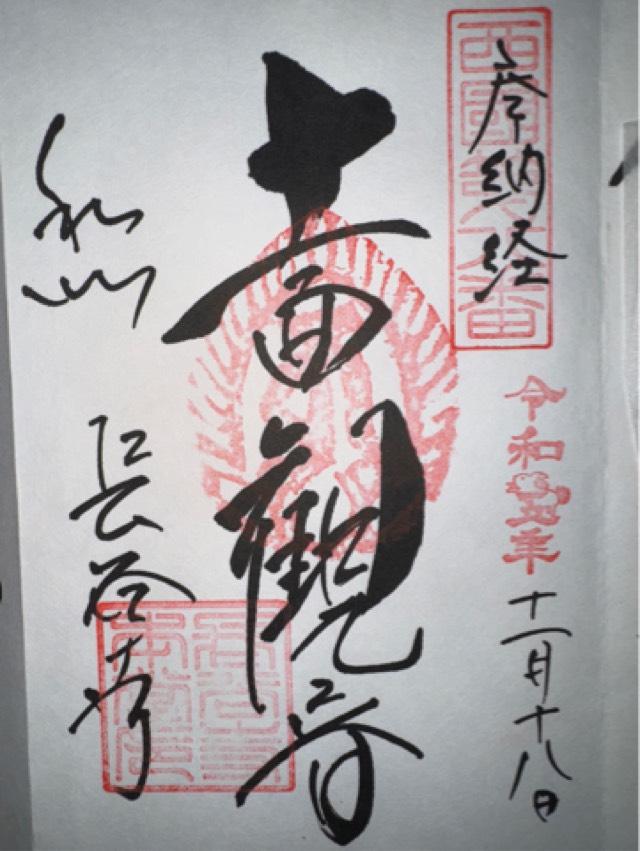 西國第八番
奉納経
令和五年
十一月十八日
十一面觀音
和州
長谷寺